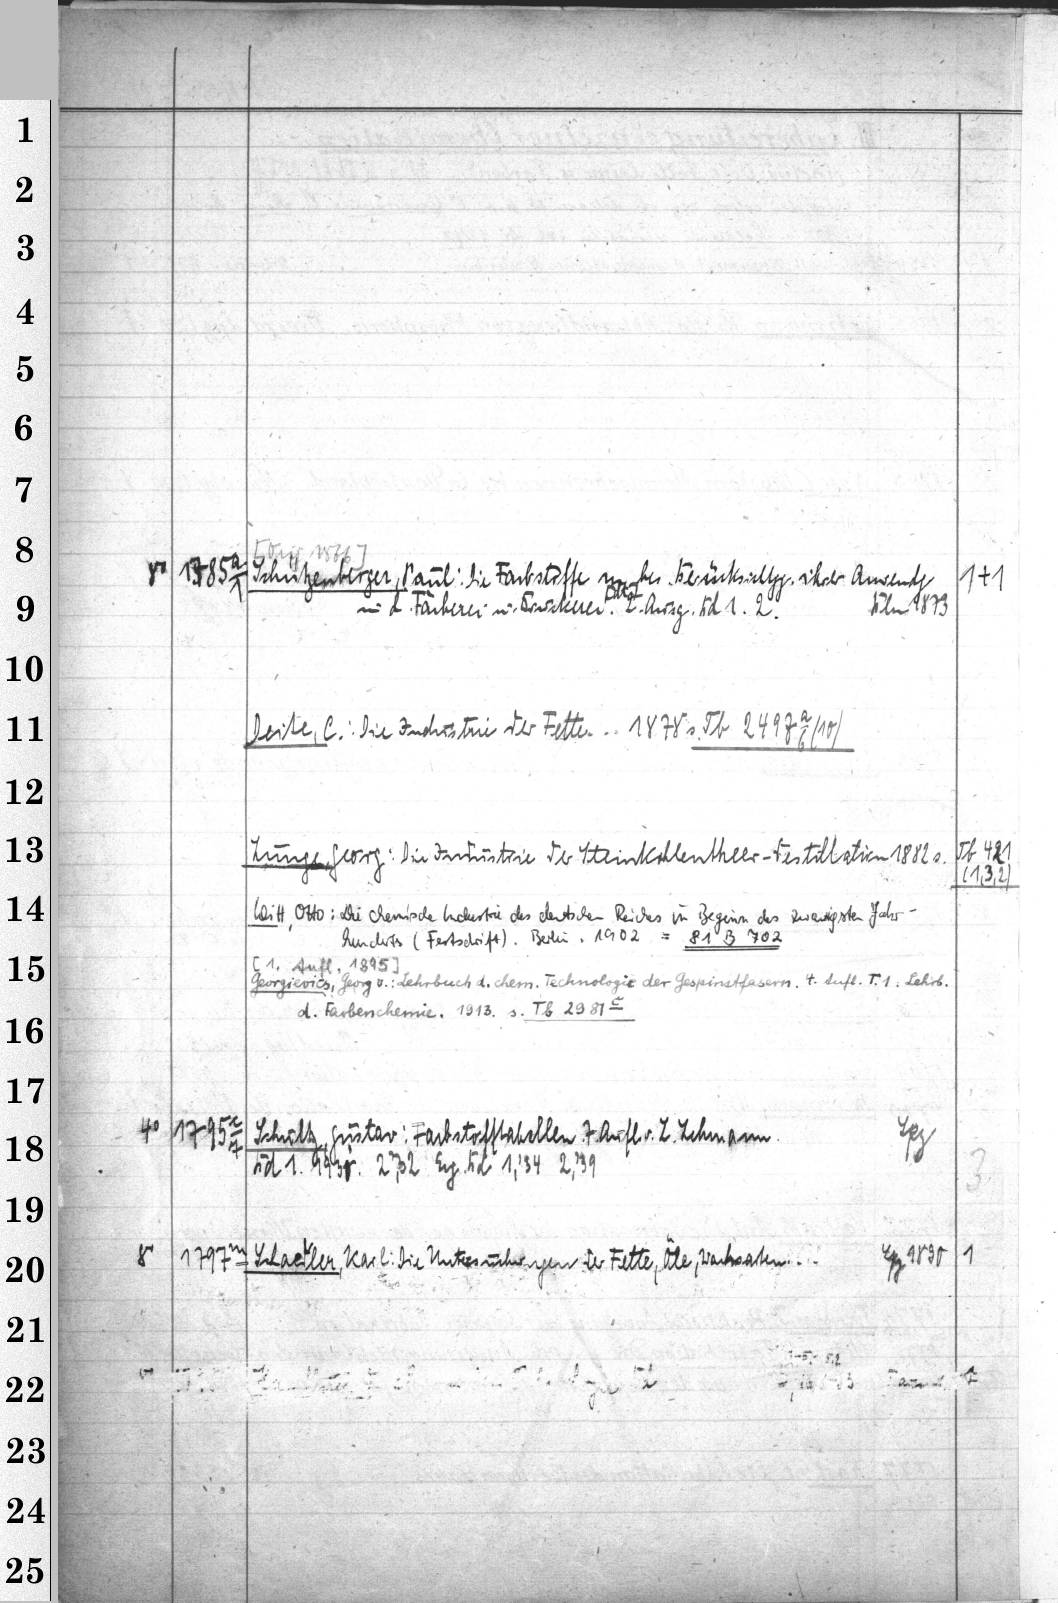 1
2
3
4
5
6
7
8
[Orig 1866]
8° 1785 a/1 Schützenberger, Paul: Die Farbstoffe m. bes. Berücksichtgg. ihrer Anwendg 1+1
9
in d. Färberei u. Druckerei. 2. Ausg. Bd 1. 2. Bln 1873
10
11
Deite, C.: Die Industrie der Fette... 1878 s. Tb 2497 a/6 (10)
12
13
Lunge, Georg: Die Industrie der Steinkohlentheer-Destillation 1882 s. Tb 421
(1,3,2)
14
Witt, Otto: Die chemische Industrie des deutschen Reiches im Beginn des zwanzigsten Jahr-
hunderts (Festschrift). Berlin. 1902 = 81 B 702
15
[1. Aufl. 1895]
Georgievics, Georg v.: Lehrbuch d. chem. Technologie der Gespinstfasern. 4. Aufl. T.1: Lehrb.
d. Farbenchemie. 1913. s. Tb 2981 c
16
17
4° 1795 Schultz, Gustav: Farbstofftabellen 7. Aufl. v. L. Lehmann. Lpz
18
Bd 1. 2,32 Erg. Bd 1,'34 2,'39
3
19
8° 1797 m Schaedler, Karl: Die Untersuchungen der Fette, Öle, Wachsarten.... Lpz 1890 1
20
21
22
23
24
25